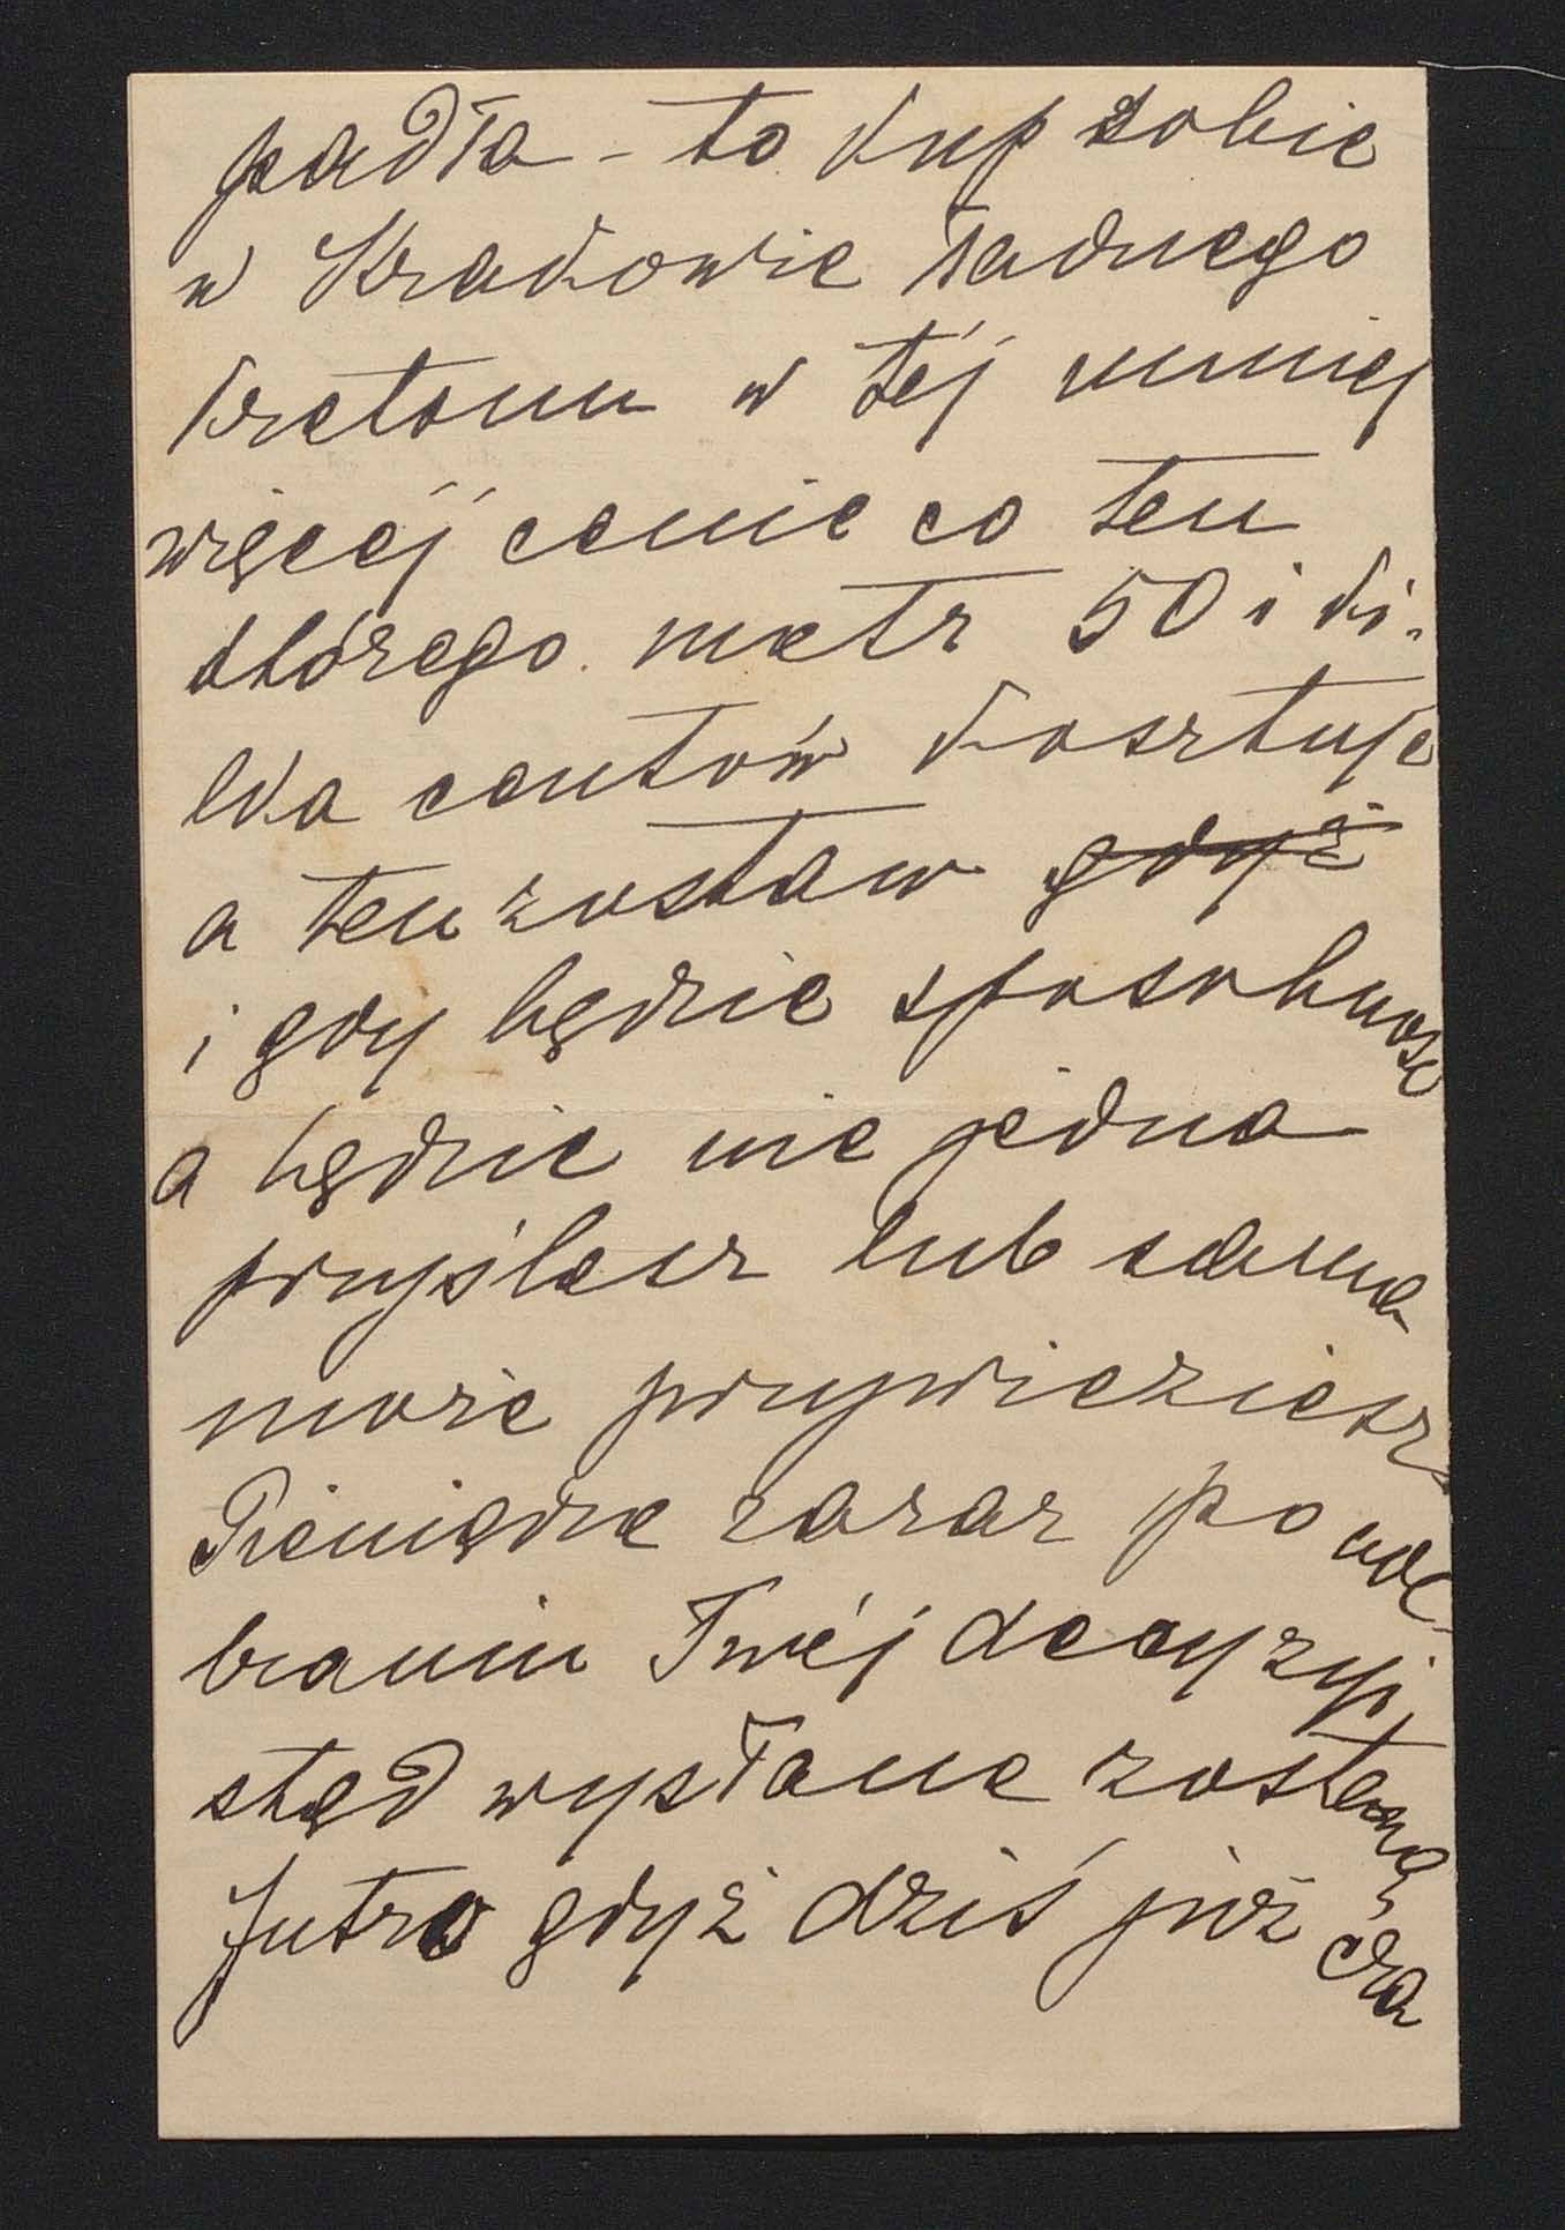 padła - to kup sobie
w Krakowie ładnego
kretonu w téj mniej
więcéj cenie co ten
którego metr 50 i ki-
lka centów kosztuje
a ten zostaw gdyż
i gdy będzie sposobność
a będzie nie jedna
przyślesz lub sama
może przywieziesz
Pieniądze zaraz po ode-
braniu Twéj decyzyi
stąd wysłane zostaną,
Jutro gdyż dziś już cza